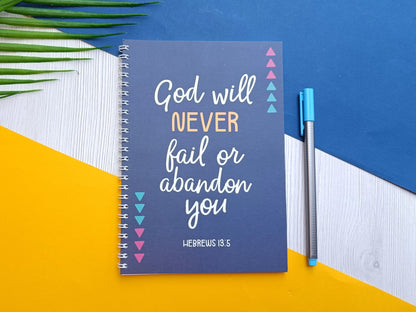 God will
NEVER
fail or
abandon
you
HEBREWS 13:5